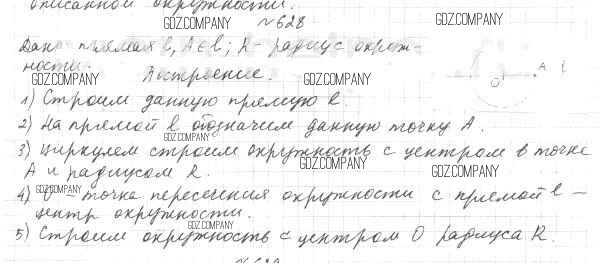 описанной окружности.
GDZ.COMPANY
№628
GDZ.COMPANY
Дано прямая l, A∈l; R - радиус окруж-
ности.
A l
GDZ.COMPANY
Построение.
GDZ.COMPANY
O
1) Строим данную прямую l.
2) На прямой l обозначим данную точку A.
GDZ.COMPANY
3) Циркулем строим окружность с центром в точке
GDZ.COMPANY
A и радиусом R.
GDZ.COMPANY
4) O - точка пересечения окружности с прямой l -
GDZ.COMPANY
центр окружности.
GDZ.COMPANY
5) Строим окружность с центром O радиуса R.